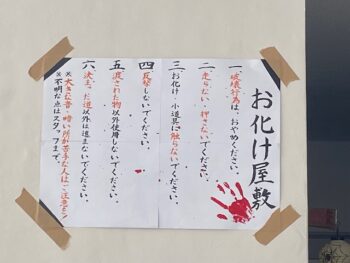 お化け屋敷
一、破壊行為は、おやめください。
二、走らない・押さないでください。
三、お化け、小道具に触らないでください。
四、反撃しないでください。
五、渡された物以外使用しないでください。
六、決まった道以外は進まないでください。
※大きな音、暗い所が苦手な人はご注意を!
※不明な点はスタッフまで。